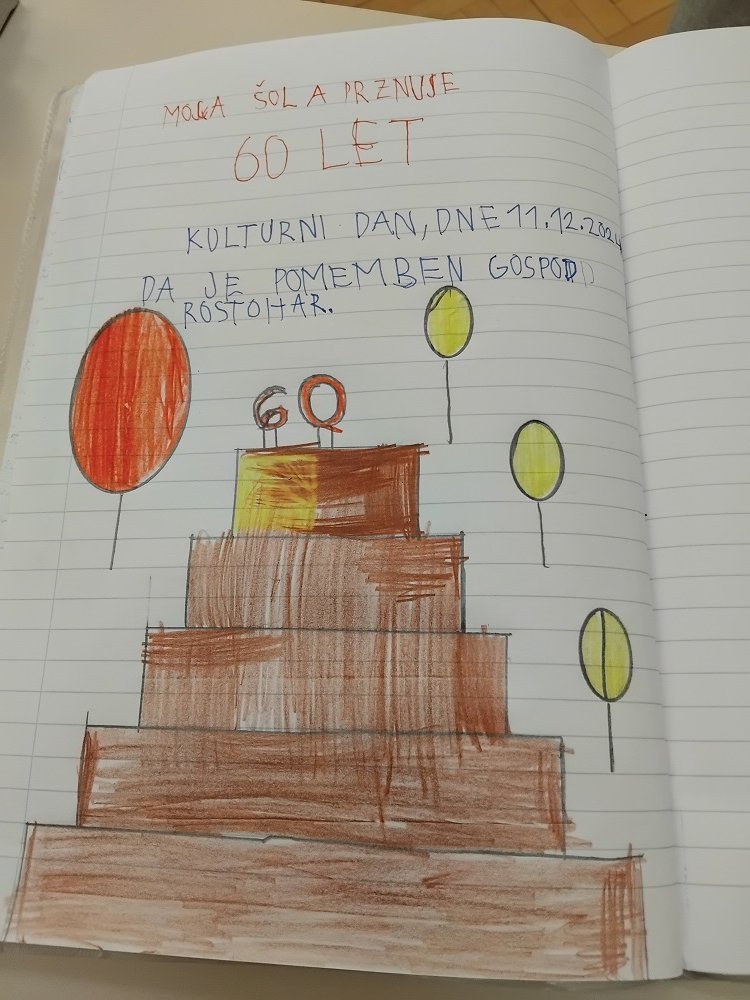 MOJA ŠOLA PRZNUJE
60 LET
KULTURNI DAN, DNE 11.12.2024
DA JE POMEMBEN GOSPOD
ROSTOHAR.
60